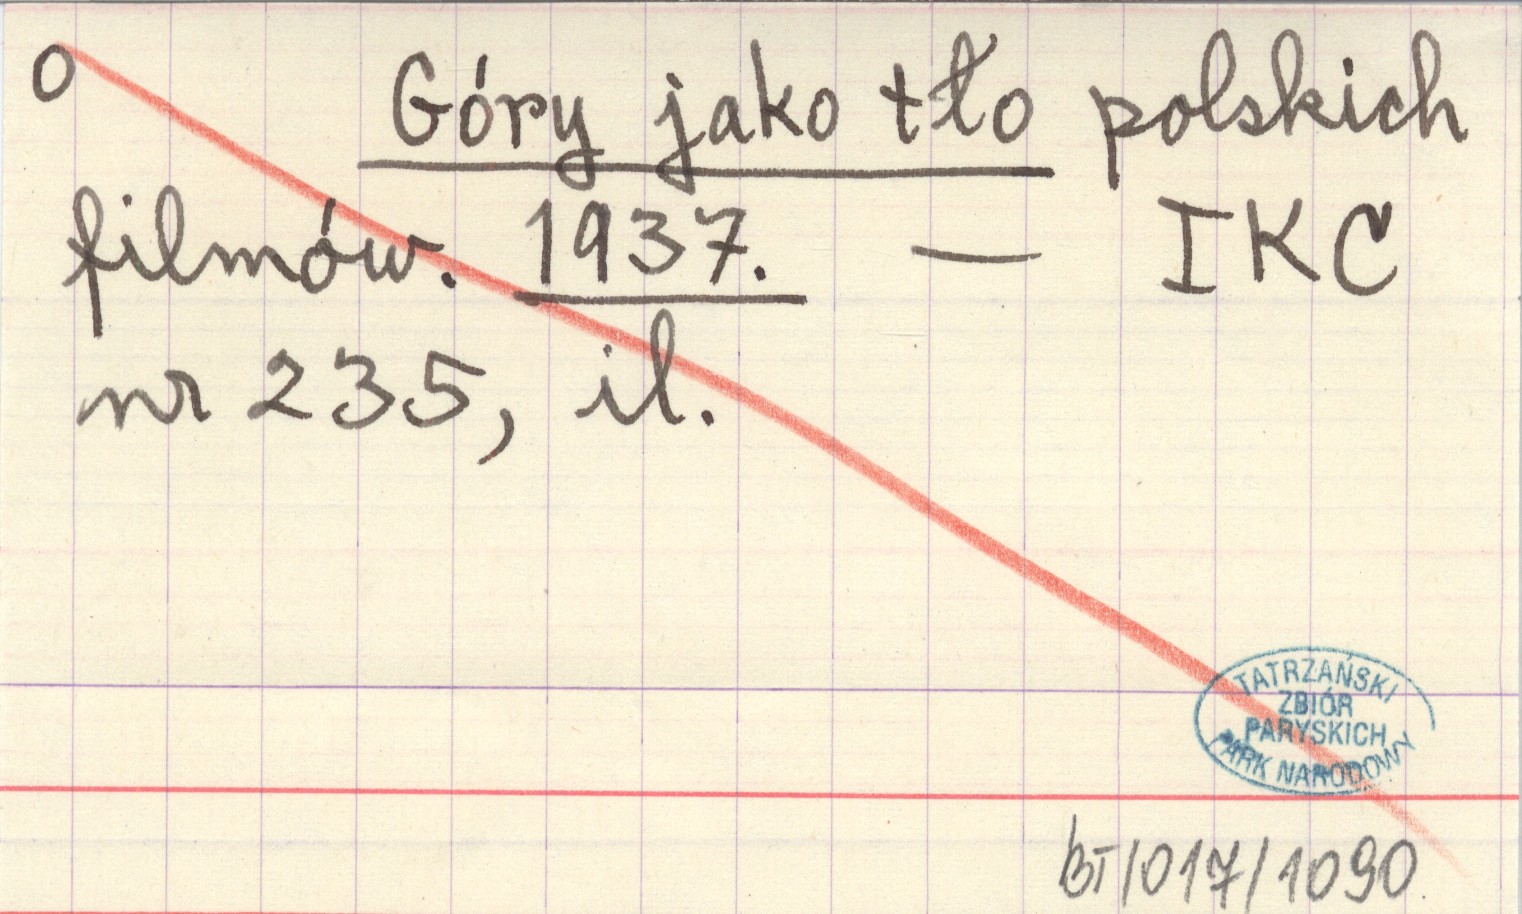 o Góry jako tło polskich
filmów. 1937. — IKC
nr 235, il.
TATRZAŃSKI
ZBIÓR
PARYSKICH
PARK NARODOWY
BT/017/1090